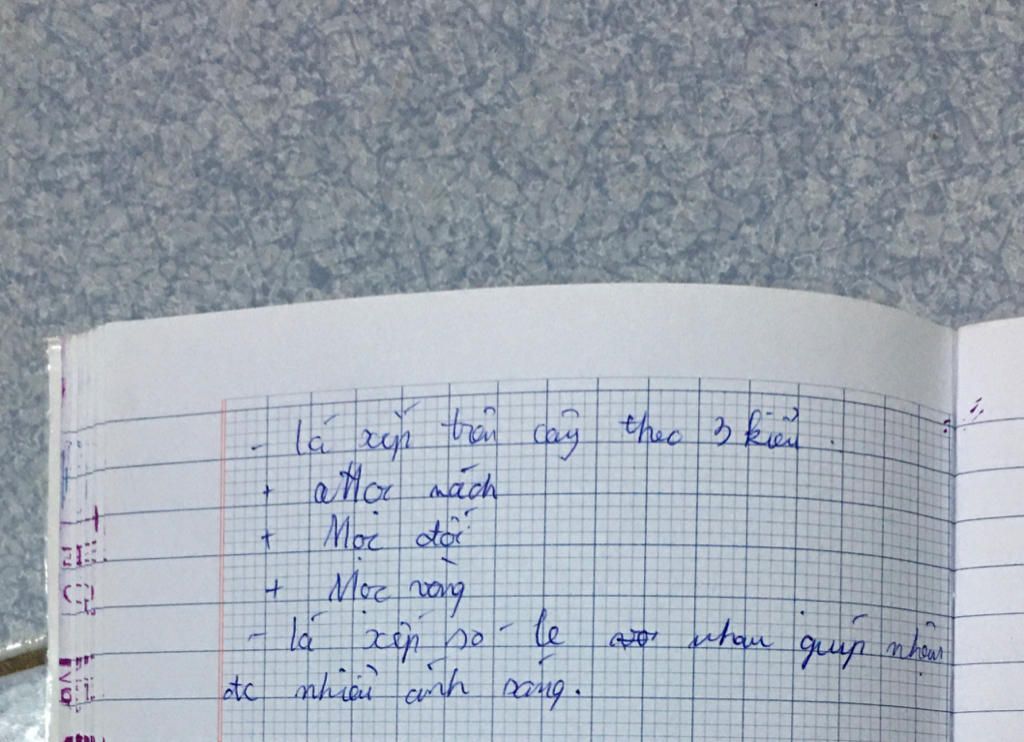 - lá xếp trên cây theo 3 kiểu.
+ Mọc mách
+ Mọc đối
+ Mọc vòng
- lá xếp so-le nhau giúp nhận
đc nhiều ánh sáng.